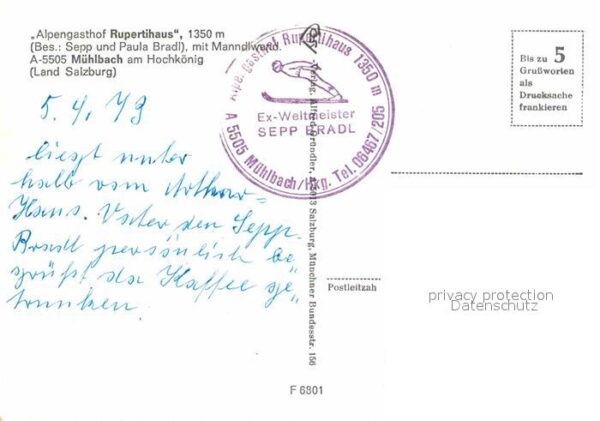 „Alpengasthof Rupertihaus“, 1350 m
(Bes.: Sepp und Paula Bradl), mit Manndlwand.
A-5505 Mühlbach am Hochkönig
(Land Salzburg)
Alpengasthof Rupertihaus 1350 m
Ex-Weltmeister
SEPP BRADL
A 5505 Mühlbach/Hkg. Tel. 06467/205
Bis zu 5
Grußworten
als
Drucksache
frankieren
5. 4. 79
liegt unter
halb vom Arthur=
Haus. Vater den Sepp
Bradl persönlich be
grüßt da Kaffee ge„
trunken.
Verlag: Alfred Gründler, A-5013 Salzburg, Münchner Bundesstr. 156
Postleitzahl
privacy protection
Datenschutz
F 6801